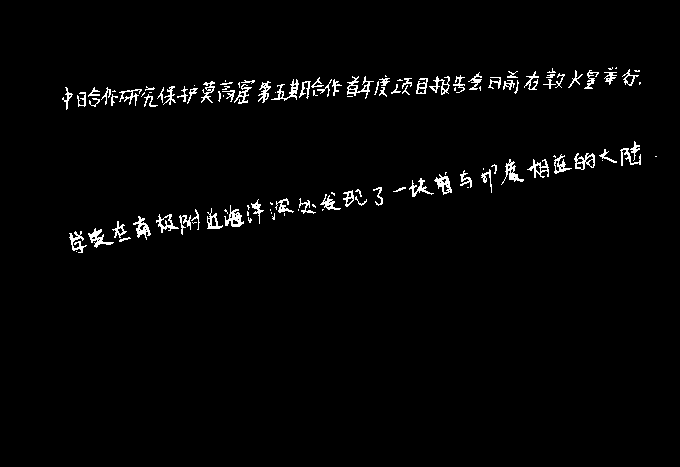 中日合作研究保护莫高窟第五期合作首年度项目报告会日前在敦煌举行.
学家在南极附近海洋深处发现了一块曾与印度相连的大陆.